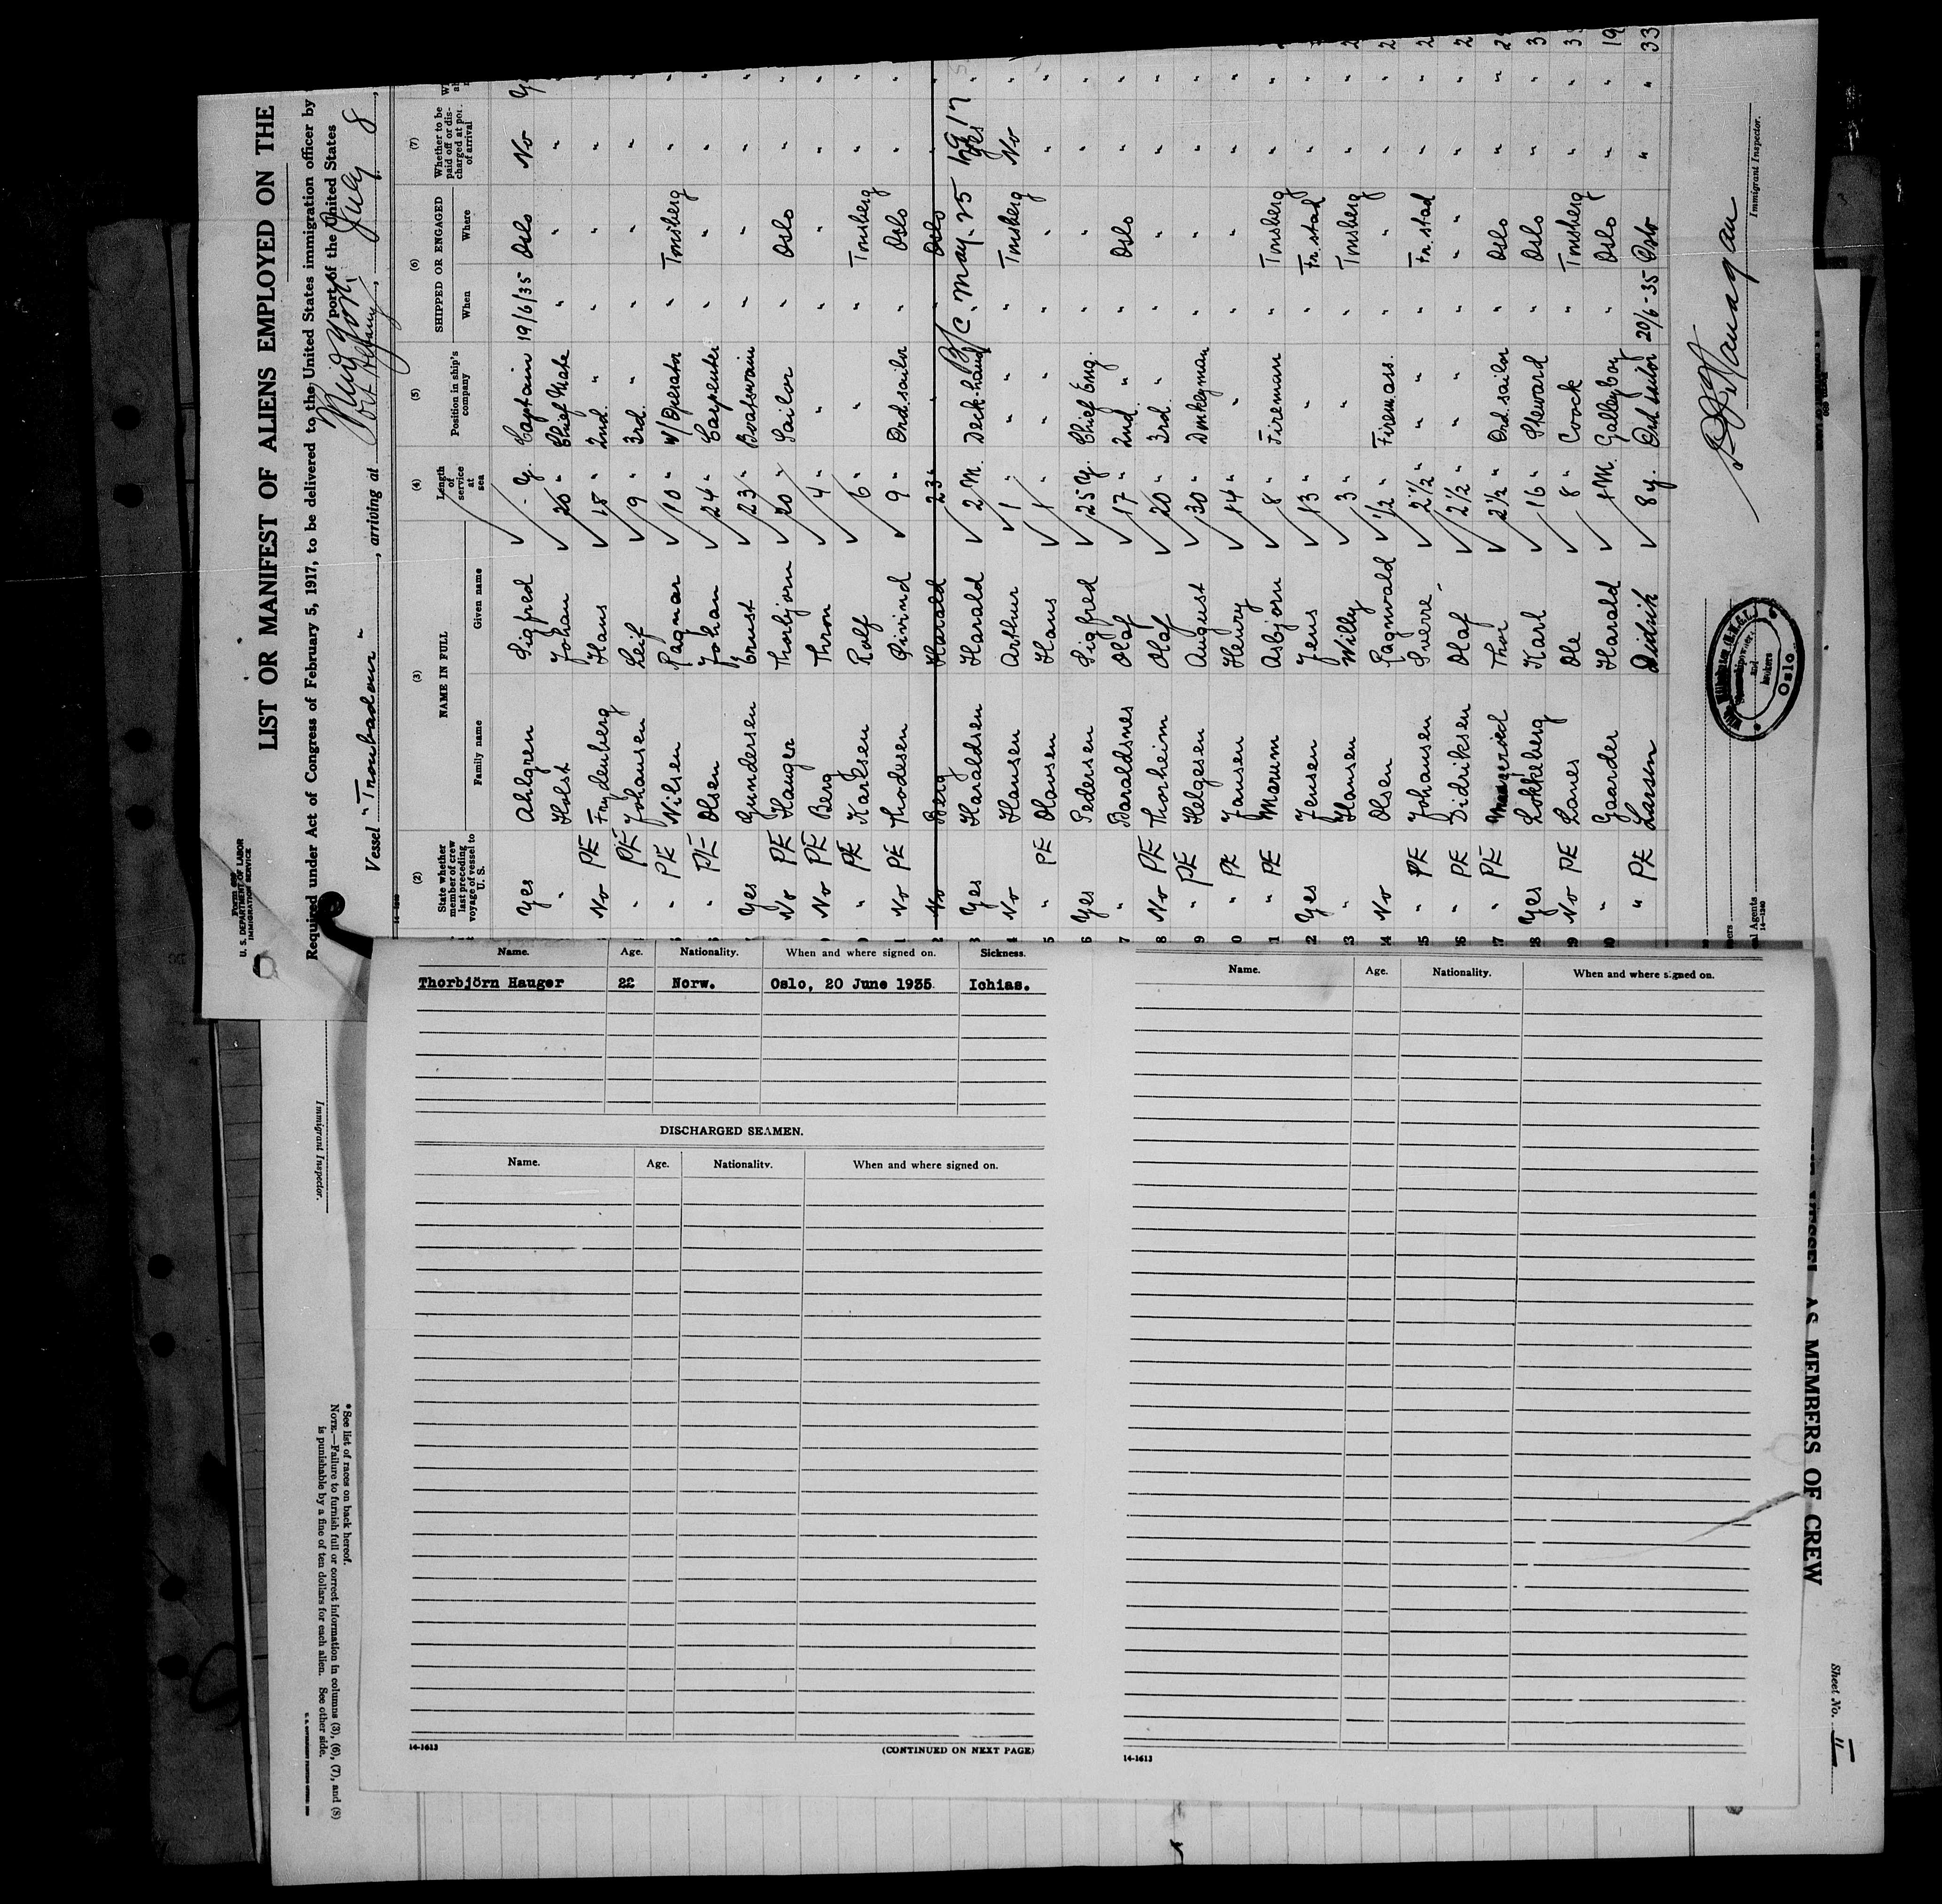 Form 689
U. S. DEPARTMENT OF LABOR
IMMIGRATION SERVICE
LIST OR MANIFEST OF ALIENS EMPLOYED ON THE
Required under Act of Congress of February 5, 1917, to be delivered to the United States immigration officer by
port of the United States
Vessel "Troubadour", arriving at July 8,
(2) (3) (4) (5) (6) (7)
State whether member of crew last preceding voyage of vessel to U. S. NAME IN FULL Length of service at sea Position in ship's company SHIPPED OR ENGAGED Whether to be paid off or discharged at port of arrival
Family name Given name When Where
Yes Ahlgren Sigfred - y. Captain 19/6/35 Oslo No
" Holst Johan 20 " Chief Mate " " "
No PE Frydenberg Hans 18 " 2nd. " " " "
" PE Johansen Leif 9 " 3rd. " " " "
" PE Nilsen Ragnar 10 " W/Operator " Tonsberg "
" PE Olsen Johan 24 " Carpenter " " "
Yes Gundersen Ernst 23 " Boatswain " " "
No PE Hauger Thorbjorn 20 " Sailor " Oslo "
No PE Berg Thron 4 " " " " "
" PE Karlsen Rolf 6 " " " Tonsberg "
No PE Thodesen Øivind 9 " Ord. sailor " Oslo "
No Berg Harald 23 " " " Oslo "
Yes Haraldsen Harald 2 M. Deck-hand B/C. May. 25
No Hansen Arthur 1 " " " Tonsberg No
" PE Olausen Hans 1 " " " " "
Yes Pedersen Sigfred 25 y. Chief Eng. " " "
" Baraldsnes Olaf 17 " 2nd. " " Oslo "
No PE Thorheim Olaf 20 " 3rd. " " " "
" PE Helgesen August 30 " Donkeyman " " "
" PE Jansen Henry 14 " " " " "
" PE Marum Asbjorn 8 " Fireman " Tonsberg "
Yes Jensen Jens 13 " " " Fr.stad "
" Hansen Willy 3 " " " Tonsberg "
No Olsen Ragnvald 1/2 " Firem.ass. " " "
" PE Johansen Sverre 2 1/2 " " " Fr.stad "
" PE Didriksen Olaf 2 1/2 " " " " "
" PE Thor 2 1/2 " Ord. sailor " Oslo "
Yes Lokkeberg Karl 16 " Steward " Oslo "
No PE Lanes Ole 8 " Coock " Tonsberg "
" Gaarder Harald 1 M. Galleyboy " Oslo "
" PE Larsen Didrik 8 y. Ord sailor 20/6-35 Oslo "
Immigrant Inspector.
Oslo
Name. Age. Nationality. When and where signed on. Sickness.
Thorbjörn Hauger 22 Norw. Oslo, 20 June 1935. Ichias.
DISCHARGED SEAMEN.
Name. Age. Nationality. When and where signed on.
14-1613
(CONTINUED ON NEXT PAGE)
Name. Age. Nationality. When and where signed on.
14-1613
Immigrant Inspector.
* See list of races on back hereof.
NOTE.—Failure to furnish full or correct information in columns (3), (6), (7), and (8)
is punishable by a fine of ten dollars for each alien. See other side.
AS MEMBERS OF CREW
Sheet No. II